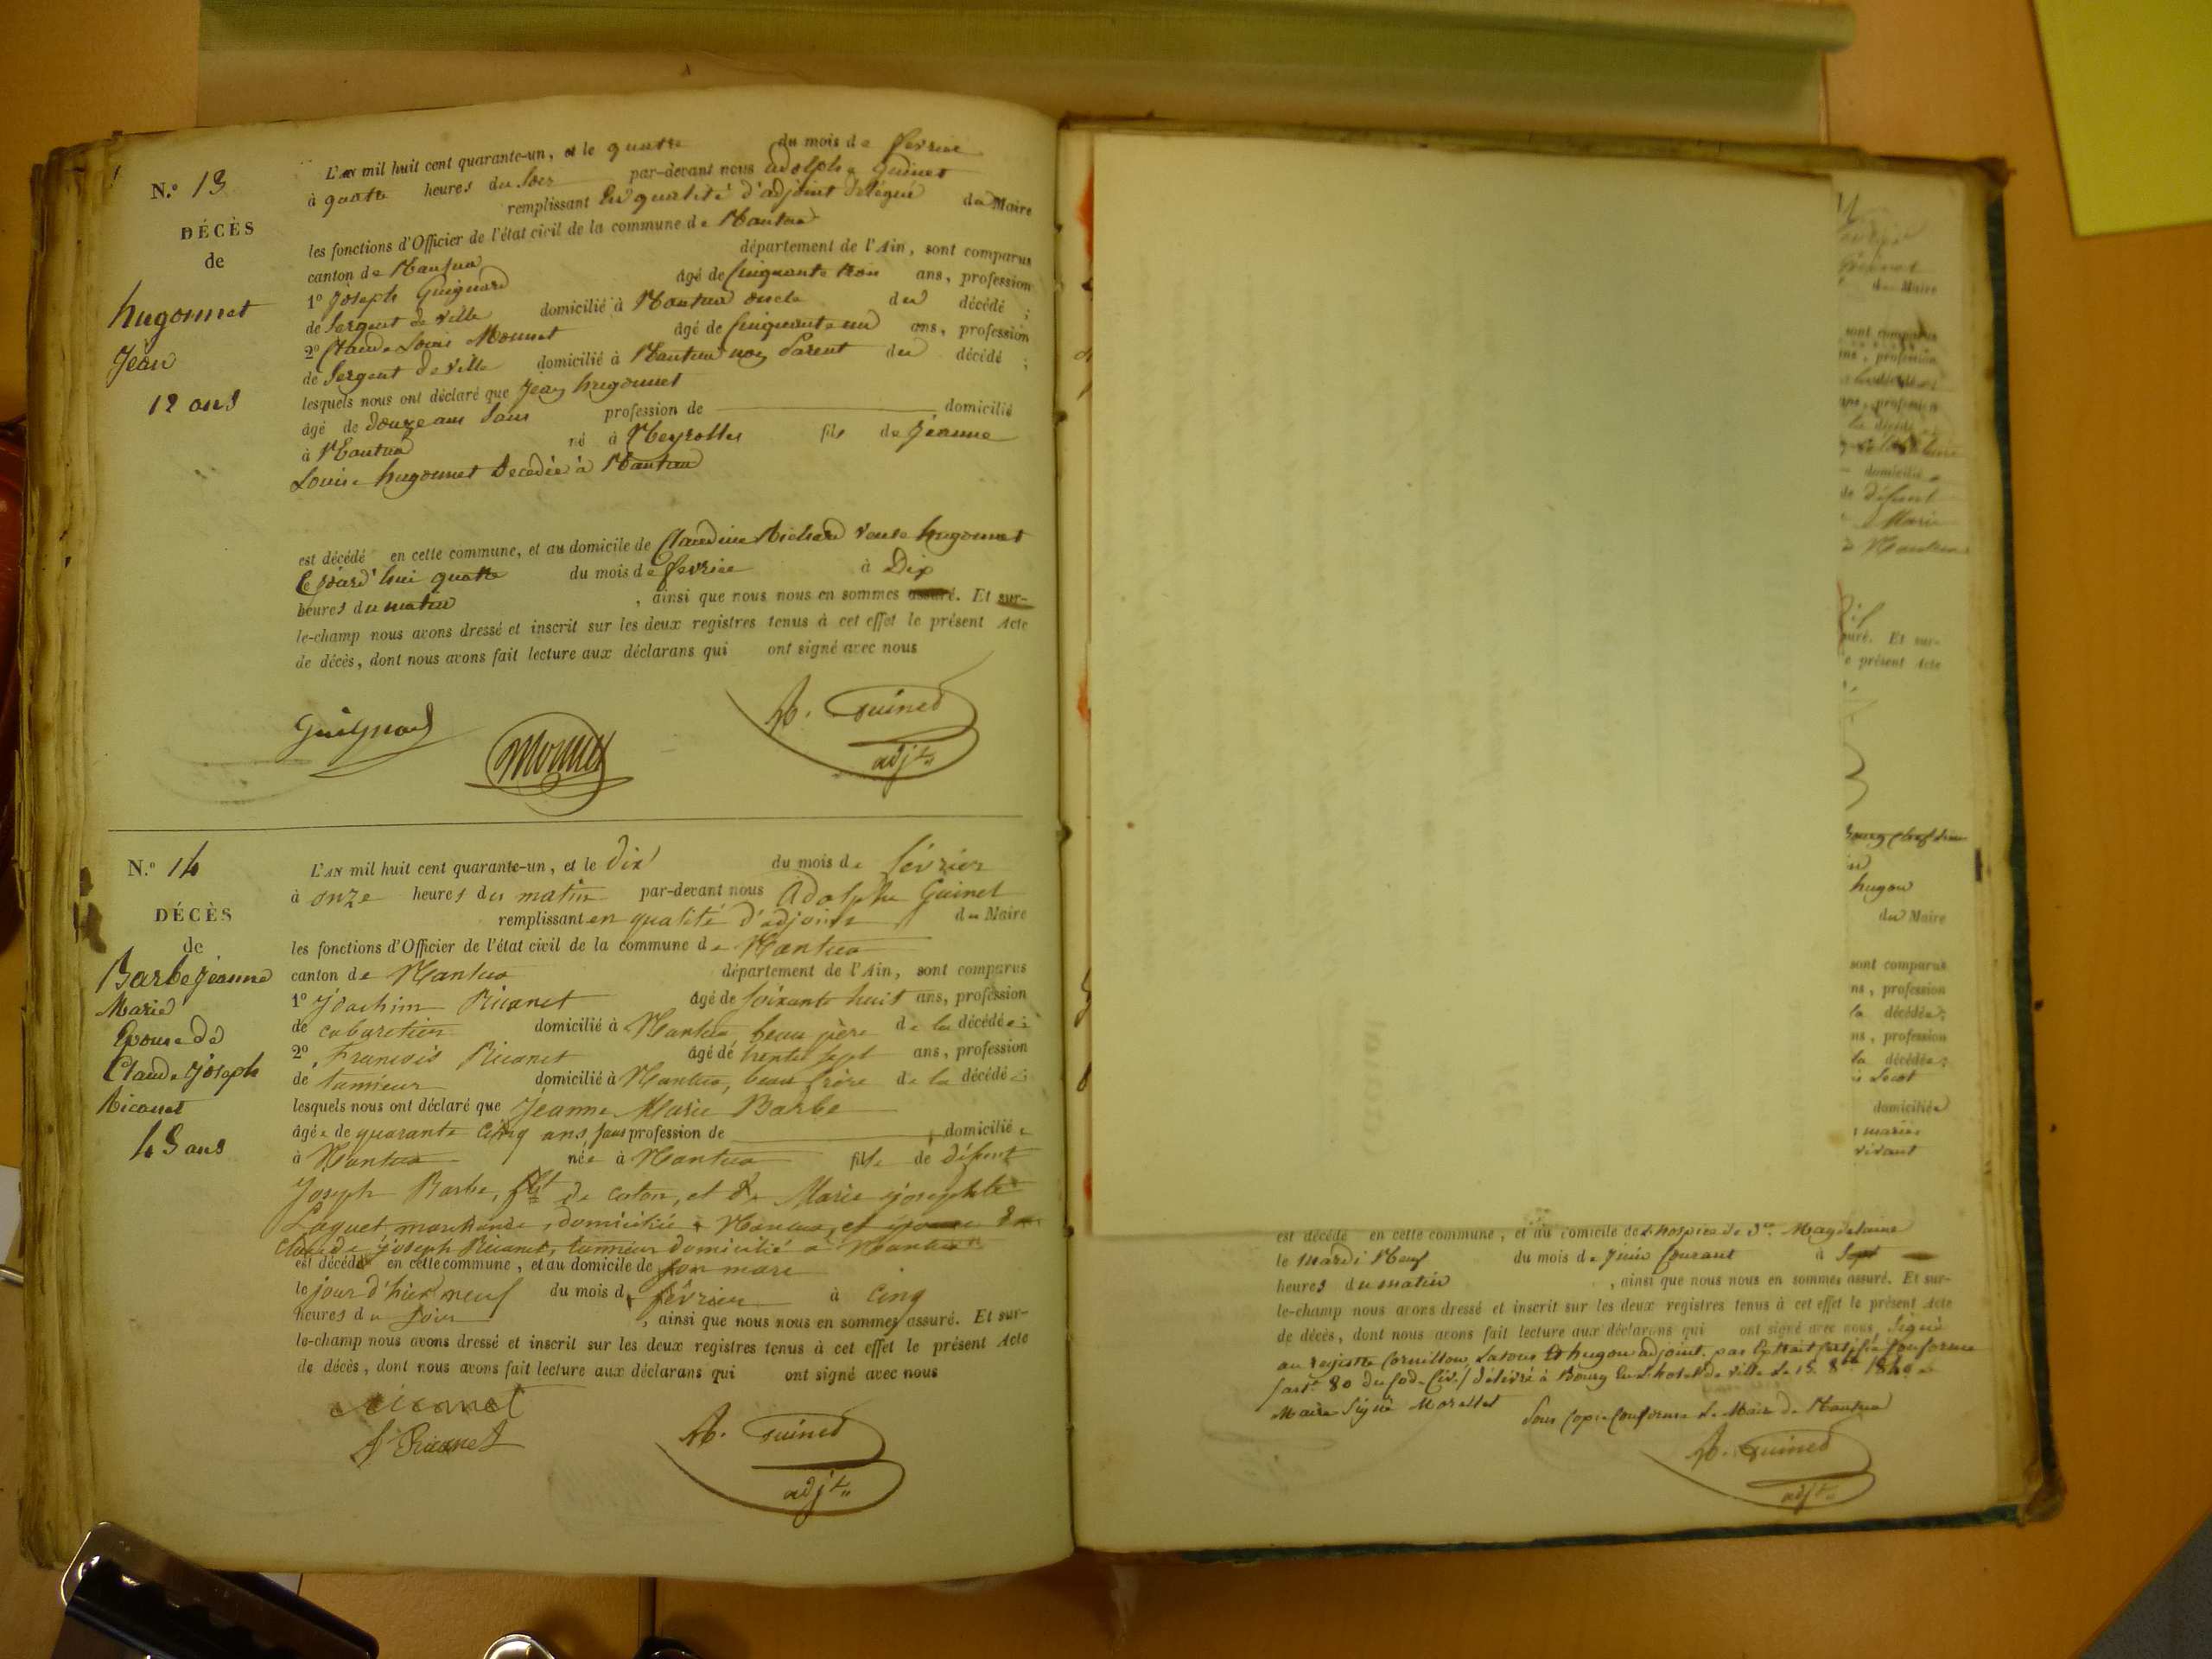 N.º 13
DÉCÈS
de
hugonnet
Jean
12 ans
L'AN mil huit cent quarante-un, et le quatre du mois de fevrier
à quatre heures du soir par-devant nous adolphe Guinet
remplissant en qualité d'adjoint délégué du Maire
les fonctions d'Officier de l'état civil de la commune de Nantua
canton de Nantua département de l'Ain, sont comparus
1º Joseph Guignard âgé de Cinquante trois ans, profession
de Sergent de ville domicilié à Nantua oncle du décédé ;
2º Claude Louis Monnet âgé de Cinquante un ans, profession
de Sergent de ville domicilié à Nantua non Parent du décédé ;
lesquels nous ont déclaré que Jean hugonnet
âgé de douze ans Sans profession de domicilié
à Nantua né à Neyrolles fils de Jeanne
Louise hugonnet Decedée à Nantua
est décédé en cette commune, et au domicile de Claudine Richard veuve hugonnet
le jourd'hui quatre du mois de fevrier à Dix
heures du matin , ainsi que nous nous en sommes assuré. Et sur-
le-champ nous avons dressé et inscrit sur les deux registres tenus à cet effet le présent Acte
de décès, dont nous avons fait lecture aux déclarans qui ont signé avec nous
Guignard
Monnet
Ad. Guinet
adj.t
N.º 14
DÉCÈS
de
Barbe Jeanne
Marie
Epouse de
Claude Joseph
Ricanet
45 ans
L'AN mil huit cent quarante-un, et le dix du mois de février
à onze heures du matin par-devant nous Adolphe Guinet
remplissant en qualité d'adjoint du Maire
les fonctions d'Officier de l'état civil de la commune de Nantua
canton de Nantua département de l'Ain, sont comparus
1º Joachim Ricanet âgé de soixante huit ans, profession
de cabaretier domicilié à Nantua beau père de la décédée ;
2º François Ricanet âgé de trente sept ans, profession
de tanneur domicilié à Nantua, beau frère de la décédée ;
lesquels nous ont déclaré que Jeanne Marie Barbe
âgée de quarante cinq ans, sans profession de domiciliée
à Nantua née à Nantua fille de défunt
Joseph Barbe, de coton, et de Marie josephte
Laguet marchande, domiciliée à Nantua, et épouse de
Claude Joseph Ricanet, tanneur domicilié à Nantua
est décédée en cette commune, et au domicile de son mari
le jour d'hier neuf du mois de février à cinq
heures du soir , ainsi que nous nous en sommes assuré. Et sur-
le-champ nous avons dressé et inscrit sur les deux registres tenus à cet effet le présent Acte
de décès, dont nous avons fait lecture aux déclarans qui ont signé avec nous
Ricanet
f Ricanet
Ad. Guinet
adj.t
du Maire
sont comparus
ns, profession
ans, profession
la décédé
domicilié
de défunt
Marie
à Nantua
suré. Et sur-
e présent Acte
hugon
du Maire
sont comparus
ns, profession
la décédée ;
ns, profession
la décédée ;
domiciliée
marie
vivant
est décédé en cette commune, et au domicile de L'hospice de S.te Magdelaine
le mardi Neuf du mois de Juin Courant à Sept
heures du matin , ainsi que nous nous en sommes assuré. Et sur-
le-champ nous avons dressé et inscrit sur les deux registres tenus à cet effet le présent Acte
de décès, dont nous avons fait lecture aux déclarans qui ont signé avec nous Signé
au registre Cornillon, Latour Et hugon adjoint. par Extrait certifié Conforme
(art. 80 du Cod. Civ.) délivré à Bourg En L'hotel de ville Le 15 8bre 1840
Maire Signé Morellet
Pour Copie Conforme Le Maire de Nantua
Ad. Guinet
adj.t